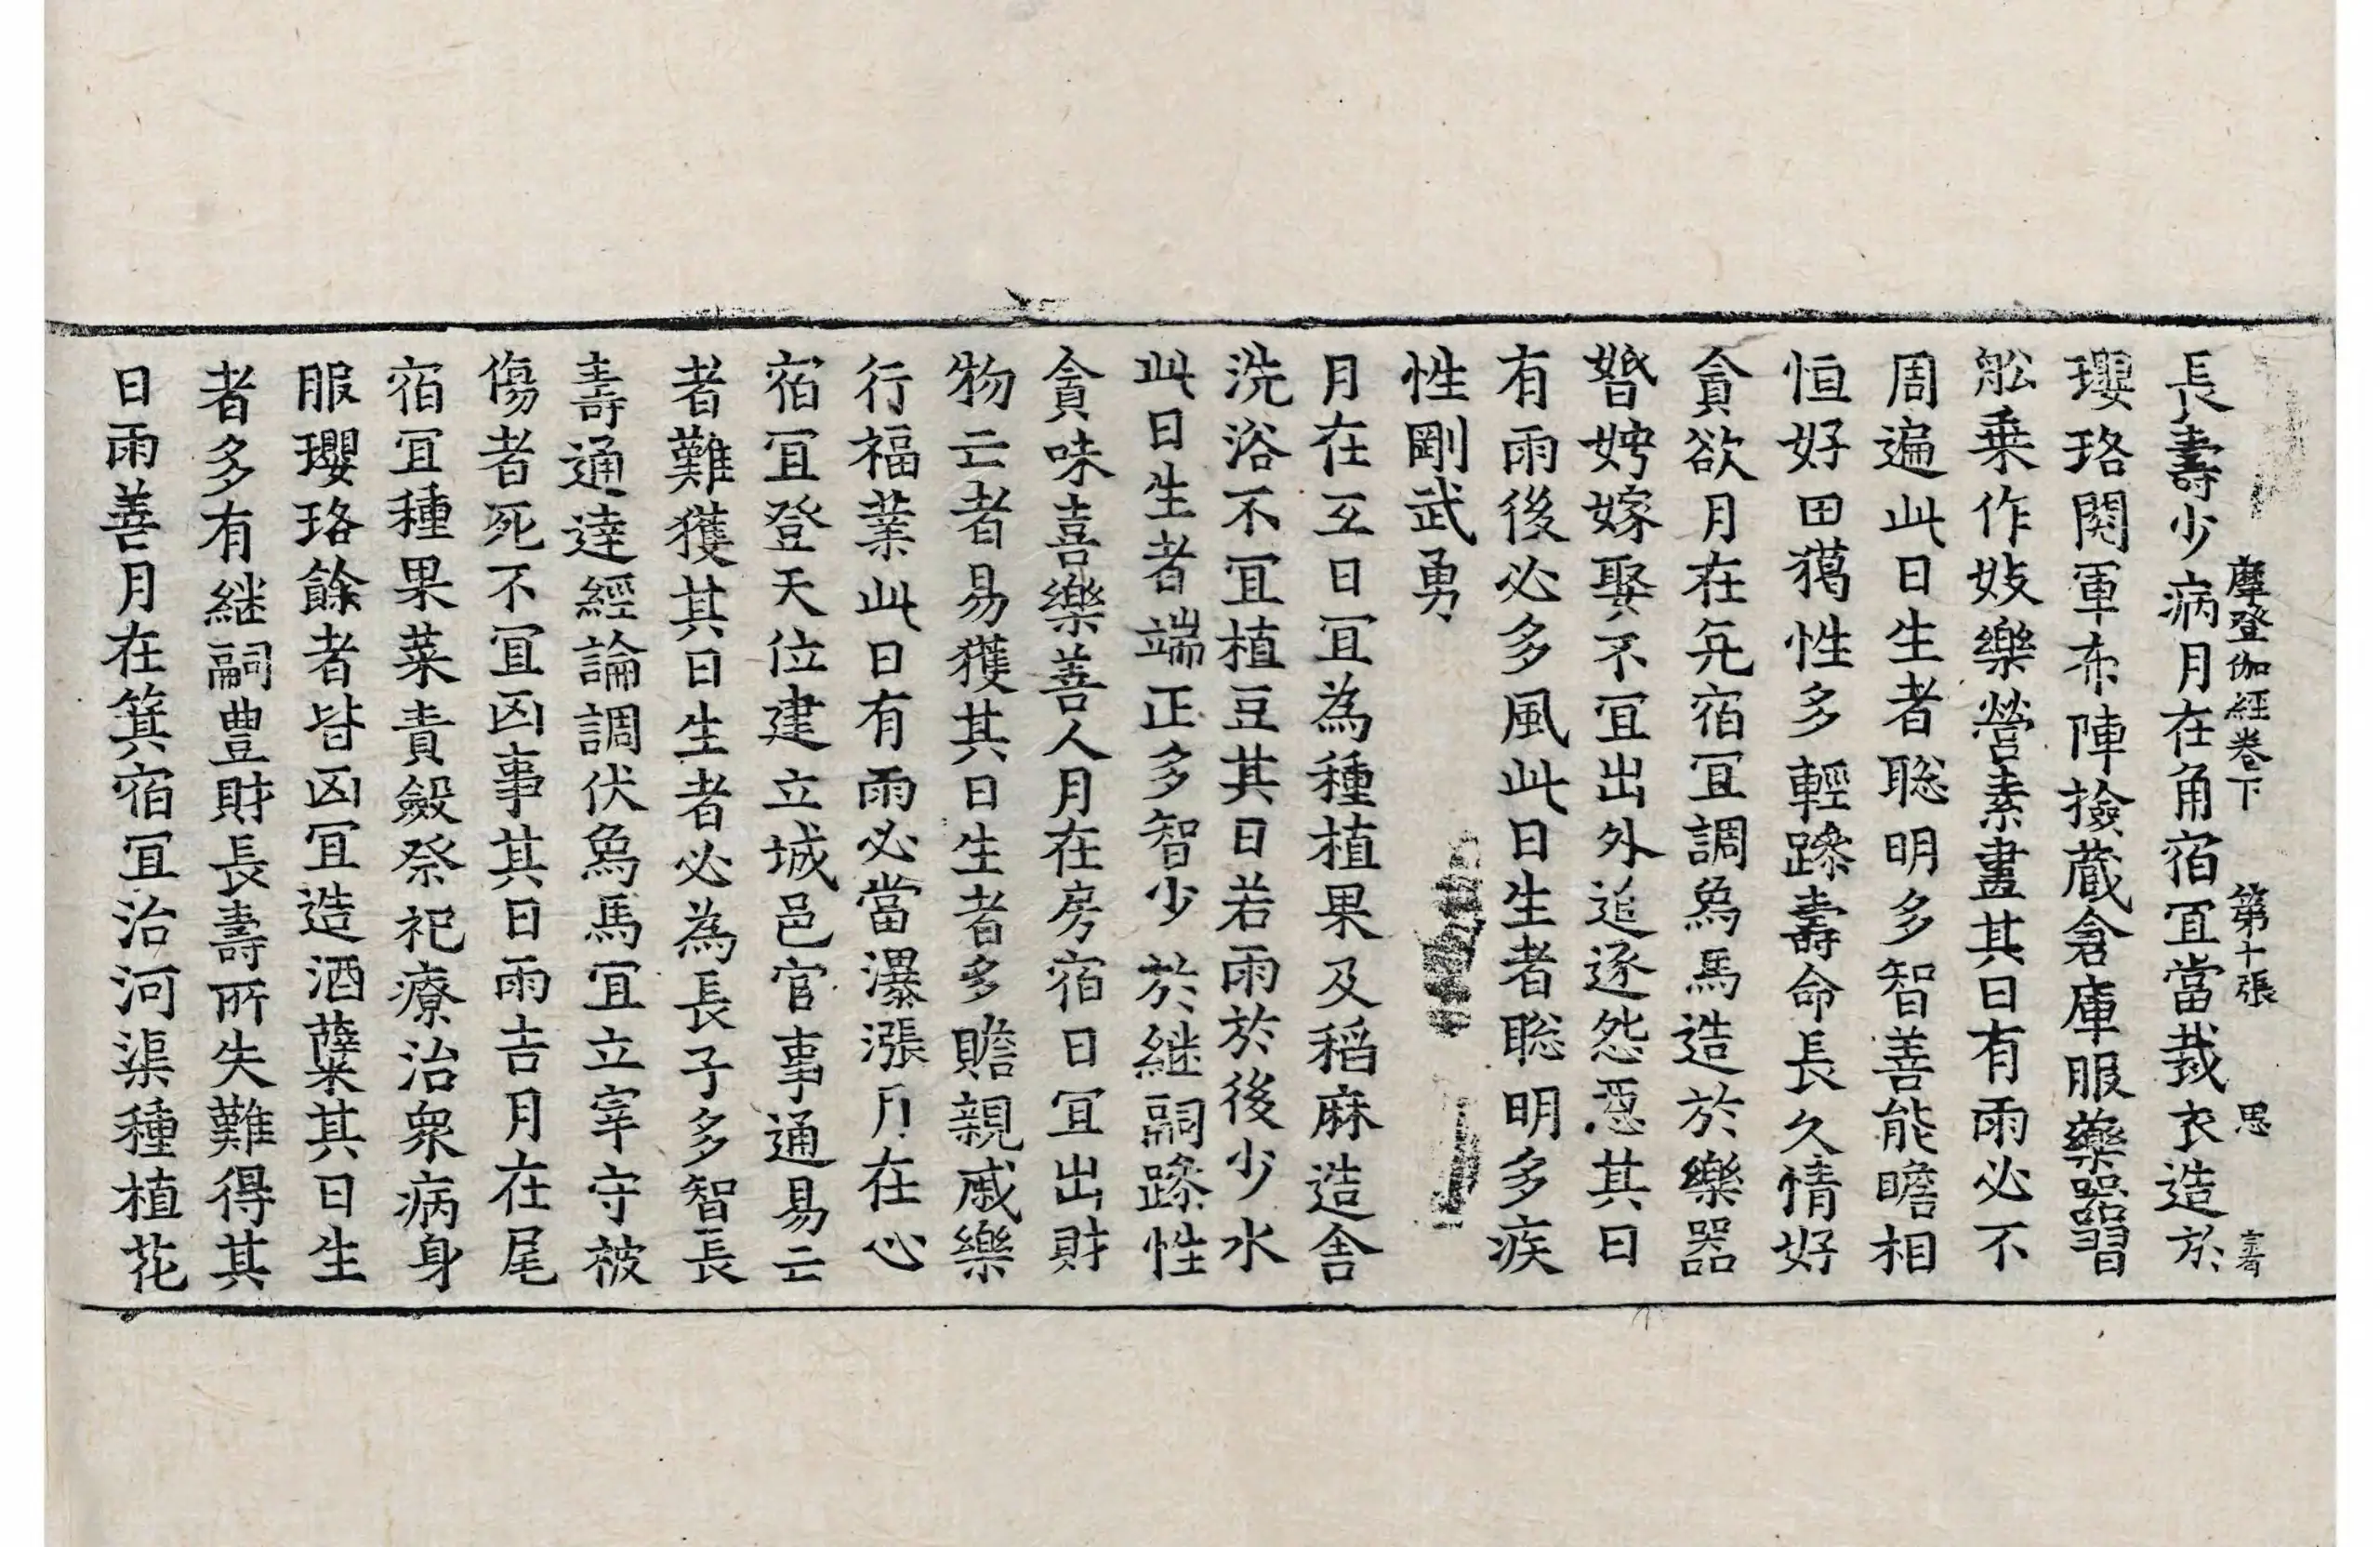 摩登伽經卷下　第十張　思
長壽少病月在角宿冝當裁衣造於
瓔珞閱軍布陣撿蔵倉庫服藥噐習
舩乗作妓樂營素畫其日有雨必不
周遍此日生者聡明多智善能瞻相
恒好田獦性多輕躁壽命長久情好
貪欲月在亢宿冝調象馬造於樂器
婚娉嫁娶不冝出外追逐怨惡其日
有雨後必多風此日生者聡明多疾
性剛武勇
月在互日冝為種植果及稻麻造舍
洗浴不冝植豆其日若雨於後少水
此日生者端正多智少於継嗣躁性
貪味喜樂善人月在房宿日冝出財
物亡者易獲其日生者多贍親戚樂
行福業此日有雨必當瀑漲月在心
宿冝登天位建立城邑官事通易亡
者難獲其日生者必為長子多智長
壽通達經論調伏象馬冝立宰守被
傷者死不冝凶事其日雨吉月在尾
宿冝種果菜責斂祭祀療治衆病身
服瓔珞餘者皆凶冝造酒蘖其日生
者多有継嗣豊財長壽所失難得其
日雨善月在箕宿冝治河渠種植花